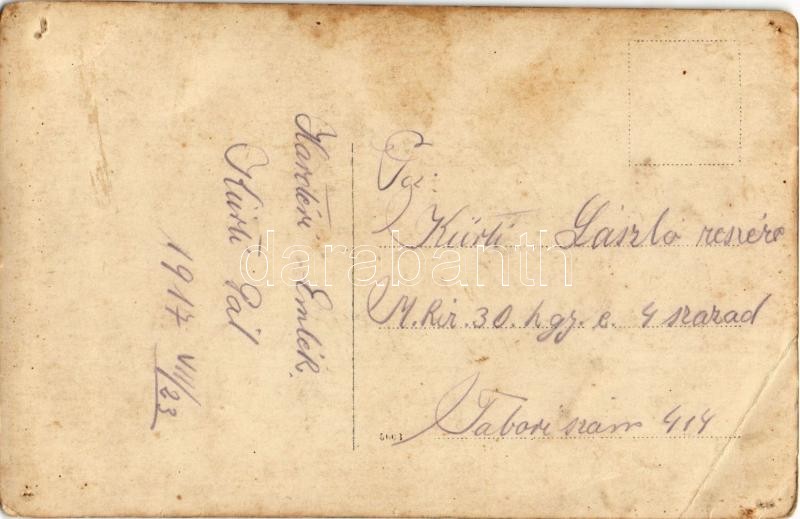 Harctéri Emlék.
Kürti Pál
1917 VIII/23
Kürti László reszére
M. kir. 30. hgy. e. 4 szazad
Tabori szám 414
darabanth